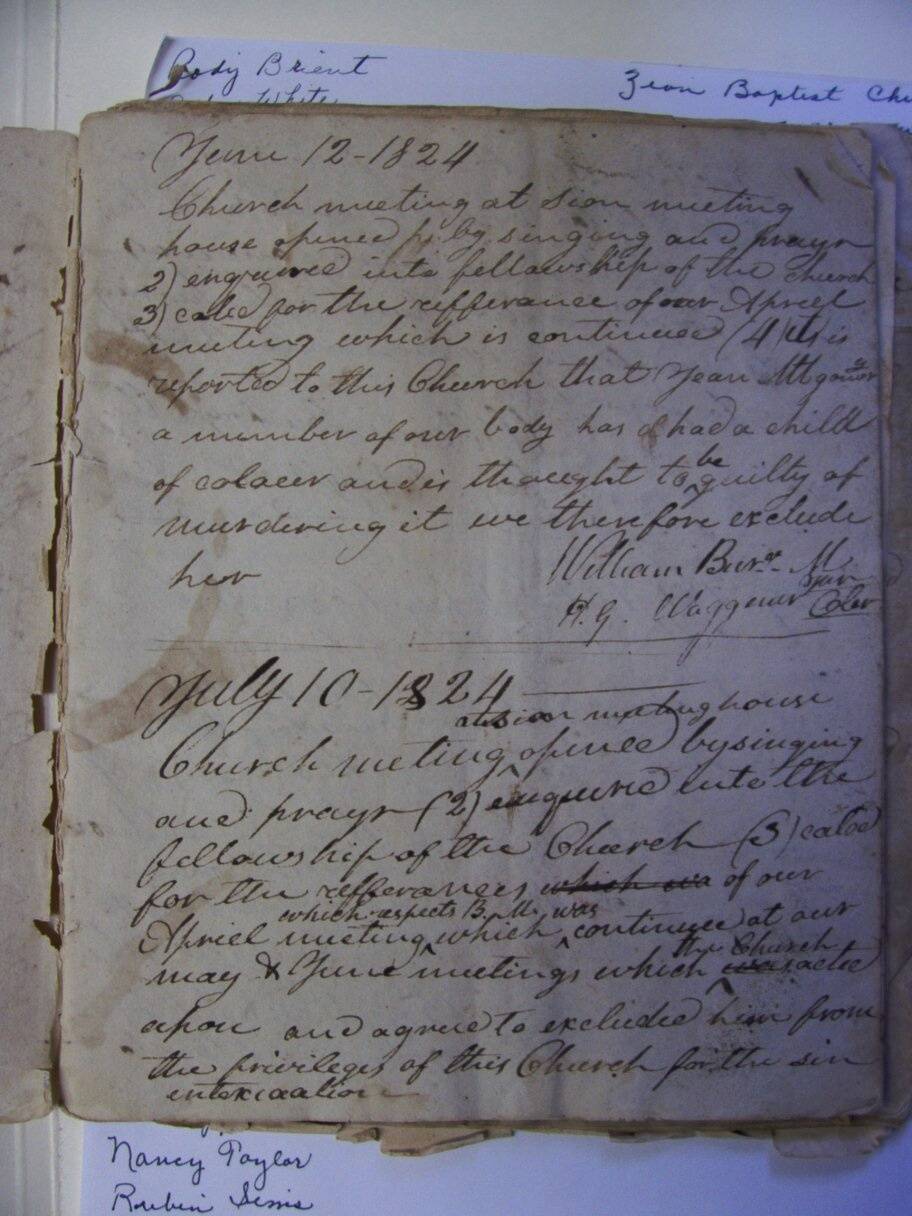 Rody Brient
White
Zion Baptist Chu
June 12-1824
Church meeting at Sion meeting
house opened by singing and prayr
2) enquired into fellowship of the church
3) caled for the refferance of our Apriel
meeting which is continued (4) it is
reported to this Church that Jean
a member of our body has had a child
of colauer and is thought to be guilty of
murdering it we therefore exclude
her
William M
H. G. Waggener
July 10-1824
at Sion meeting house
Church meting opened by singing
and prayr (2) enquired into the
fellowship of the Church (3) caled
for the refferances which wa of our
which respects B. M. was
Apriel meeting which continued at our
the Church
may & June meetings which was acted
apon and agree to exclude him from
the privileges of this Church for the sin
intoxication
Nancy Taylor
Rubin Sims